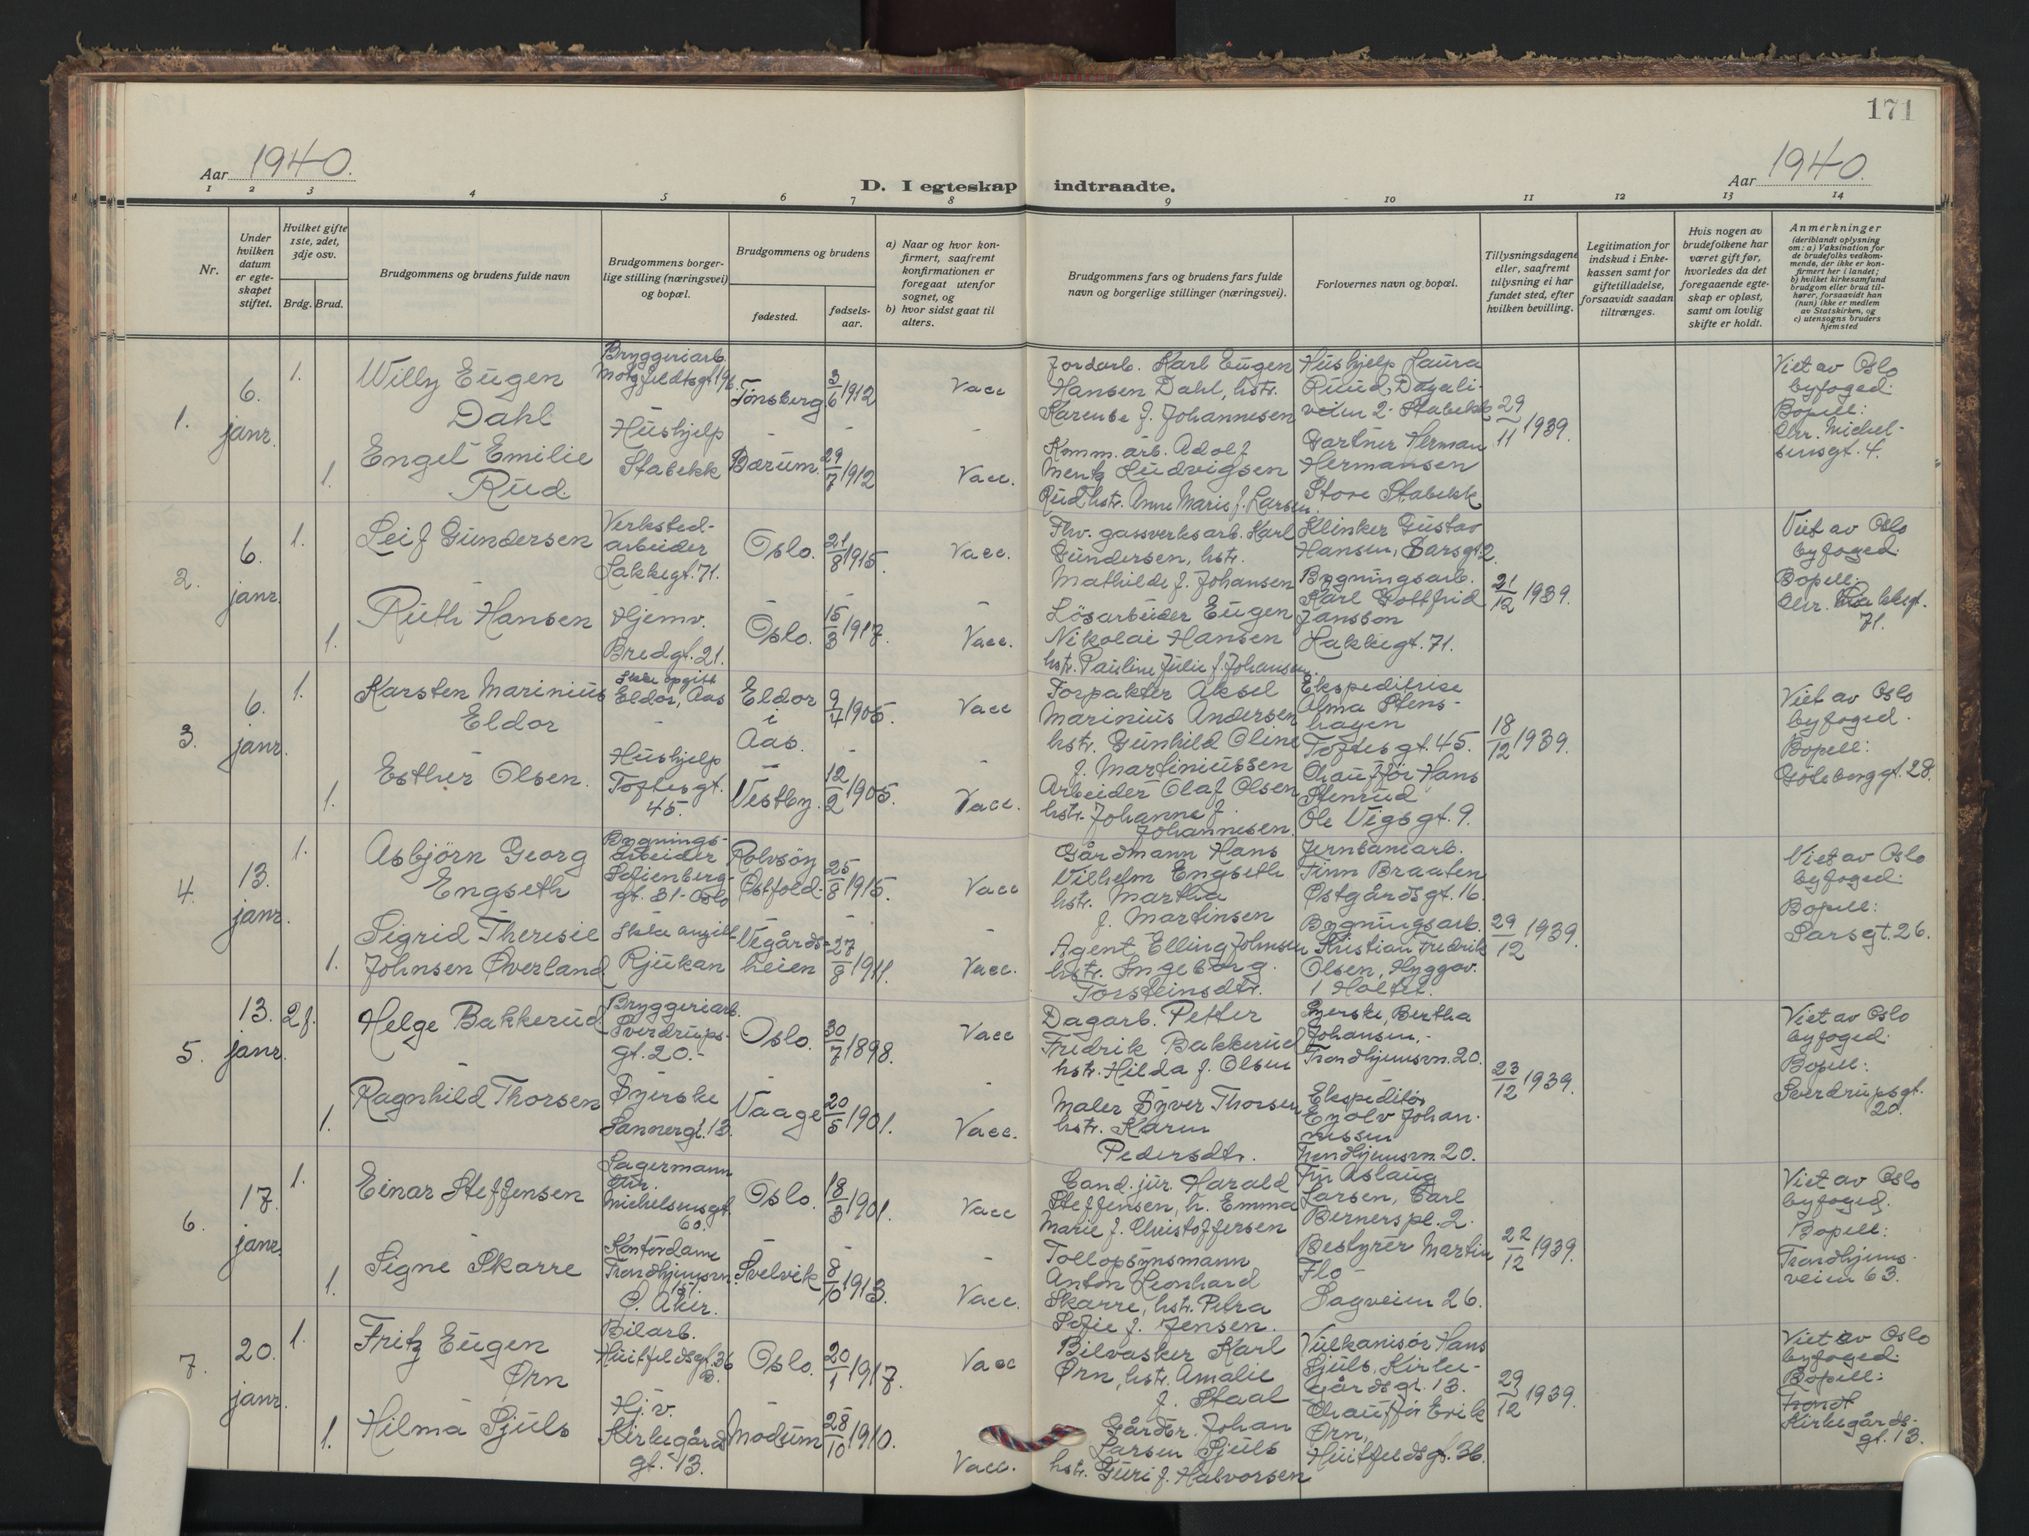 171
Aar 1940.
D. I egteskap indtraadte.
Aar 1940.
1 2 3 4 5 6 7 8 9 10 11 12 13 14
Nr.
Under hvilken datum er egteskapet stiftet.
Hvilket gifte 1ste, 2det, 3dje osv.
Brdg. Brud.
Brudgommens og brudens fulde navn
Brudgommens borgerlige stilling (næringsvei) og bopæl.
Brudgommens og brudens
fødested.
fødselsaar.
a) Naar og hvor konfirmert, saafremt konfirmationen er foregaat utenfor sognet, og
b) hvor sidst gaat til alters.
Brudgommens fars og brudens fars fulde navn og borgerlige stillinger (næringsvei).
Forlovernes navn og bopæl.
Tillysningsdagene eller, saafremt tillysning ei har fundet sted, efter hvilken bevilling.
Legitimation for indskud i Enkekassen samt for giftetilladelse, forsaavidt saadan tiltrænges.
Hvis nogen av brudefolkene har været gift før, hvorledes da det foregaaende egteskap er opløst, samt om lovlig skifte er holdt.
Anmerkninger
(deriblandt oplysning om: a) Vaksination for de brudefolks vedkommende, der ikke er konfirmert her i landet; b) hvilket kirkesamfund brudgom eller brud tilhører, forsaavidt han (hun) ikke er medlem av Statskirken, og c) utensogns bruders hjemsted
1.
6. janr.
1.
Willy Eugen
Dahl
Bryggeriarb.
Motzfeldtsgt. 19b.
Tönsberg
3/6 1912
Vacc
Jordarb. Karl Eugen
Hansen Dahl, hstr.
Karense f. Johannesen
Hushjelp Laura
Ruud, Dagali-
veien 2. Stabekk
29/11 1939.
Viet av Oslo
byfoged.
Bopell:
Chr. Michel-
sensgt. 4.
1.
Engel Emilie
Rud.
Hushjelp
Stabekk
Bærum.
29/7 1912
Vacc.
Komm. arb. Adolf
Mentz Ludvigsen
Rud hstr. Anne Marie f. Larsen.
Gartner Herman
Hermansen
Store Stabekk
2.
6. janr.
1.
Leif Gundersen
Verksted-
arbeider
Lakkegt. 71.
Oslo.
21/8 1915.
Vacc.
Fhv. gassverksarb. Karl
Gundersen, hstr.
Mathilde f. Johansen
Klinker Gustav
Hansen, Sarsgt. 2
21/12 1939.
Viet av Oslo
byfoged.
Bopell:
Lakkegt.
71.
1.
Ruth Hansen
Hjemv.
Bredgt. 21.
Oslo.
15/3 1917.
Vacc.
Lösarbeider Eugen
Nikolai Hansen
hstr. Pauline Julie f. Johansen
Bygningsarb.
Karl Gottfrid
Jansson
Lakkegt. 71.
3.
6. janr.
1.
Karsten Marinius
Eldor
Ikke opgitt
Eldor, Aas
Eldor
i
Aas.
9/7 1905.
Vacc
Forpakter Aksel
Marinius Andersen
hstr. Gunhild Oline
f. Martiniussen
Ekspeditrise
Alma Stens-
hagen
Toftesgt. 45.
18/12 1939.
Viet av Oslo
byfoged.
Bopell:
Göteborggt. 28.
1.
Esther Olsen.
Hushjelp
Toftesgt.
45.
Vestby.
12/2 1905.
Vacc.
Arbeider Olaf Olsen
hstr. Johanne f.
Johannesen.
Chaufför Hans
Stenrud
Ole Vigsgt. 9.
4.
13. janr.
1.
Asbjörn Georg
Engseth
Bygnings-
arbeider
Sofienberg-
gt. 31. Oslo
Rolvsöy
Östfold.
25/8 1915.
Vacc
Gårdmann Hans
Vilhelm Engseth
hstr. Martha
f. Martinsen
Jernbanearb.
Finn Braaten
Østgårdsgt. 16.
29/12 1939.
Viet av Oslo
byfoged.
Bopell:
Sarsgt. 26.
1.
Sigrid Theresie
Johnsen Øverland
Ikke angitt
Rjukan
Vegårds-
heien
27/8 1911.
Vacc.
Agent Elling Johnsen
hstr. Ingeborg.
Torsteinsdtr.
Bygningsarb.
Kristian Fredrik
Olsen, Hyggov.
1 Holtet.
5.
13. janr.
2f.
Helge Bakkerud
Bryggeriarb.
Sverdrups-
gt. 20.
Oslo.
30/7 1898.
Vacc
Dagarb. Petter
Fredrik Bakkerud
hstr. Hilda f. Olsen
Syerske, Bertha
Johansen,
Trondhjemsvn. 20.
23/12 1939.
Viet av Oslo
byfoged.
Bopell:
Sverdrupsgt.
20.
1.
Ragnhild Thorsen
Syerske
Sannergt. 13.
Vaage
20/5 1901.
Vacc.
Maler Syver Thorsen
hstr. Karen
Pedersdtr.
Ekspeditör
Eyolv Johan-
nessen
Trondhjemsvn. 20.
6.
17. janr.
1.
Einar Steffensen
Lagermann
Chr.
Michelsensgt.
60.
Oslo.
18/3 1901.
Vacc
Cand. jur. Harald
Steffensen, h. Emma
Marie f. Christoffersen
Frü Aslaug
Larsen, Carl
Bernerspl. 2.
22/12 1939.
Viet av Oslo
byfoged.
Bopell:
Trondhjems-
veien 63.
1.
Signe Skarre
Kontordame
Trondhjemsvn.
Svelvik
8/10 1913.
Vacc.
Tollopsynsmann
Anton Leonhard
Skarre, hstr. Petra
Sofie f. Jensen.
Bestyrer Martin
Flo
Sagveien 26.
7.
20. janr.
1.
Fritz Eugen
Ørn
Bilarb.
Huitfeldsgt. 36
Oslo.
20/1 1917.
Vacc
Bilvasker Karl
Ørn, hstr. Amalie
f. Staal
Vulkanisör Hans
Sjuls, Kirke-
gårdsgt. 13.
29/12 1939.
Viet av Oslo
byfoged.
Bopell:
Trondt
Kirkegårds-
gt. 13.
1.
Hilma Sjuls
Hj.v.
Kirkegårds
gt. 13.
Modum
28/10 1910.
Vacc.
Gårdbr. Johan
Larsen Sjuls
hstr. Guri f. Halvorsen
Chaufför Erik
Ørn,
Huitfeldsgt. 36.